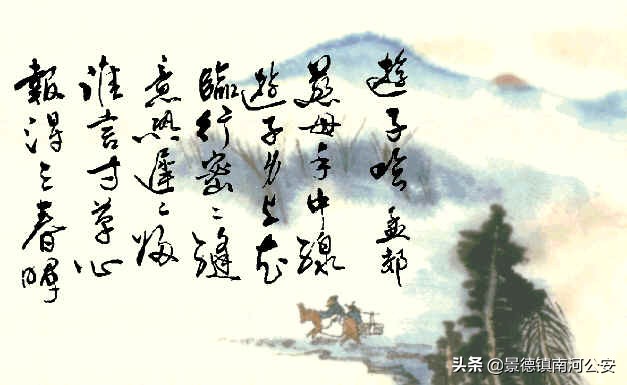 遊子吟 孟郊
慈母手中線
遊子身上衣
臨行密々縫
意恐遲々歸
誰言寸草心
報得三春暉
头条 @景德镇南河公安